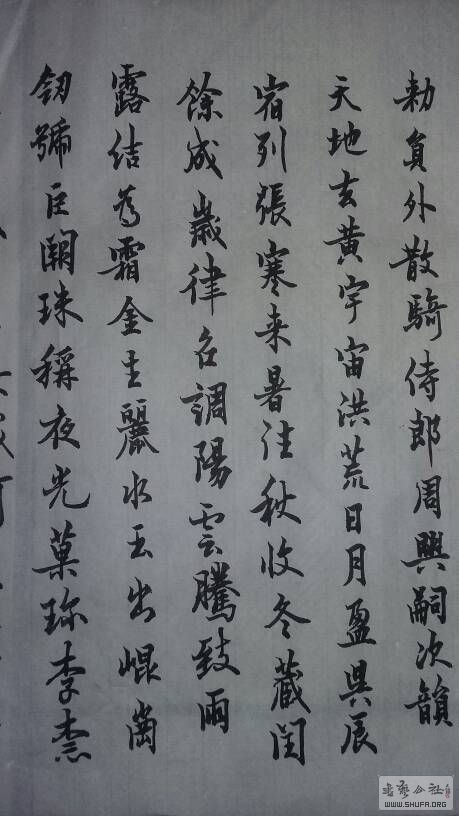 勅員外散騎侍郎周興嗣次韻
天地玄黄宇宙洪荒日月盈昃辰
宿列張寒来暑往秋收冬藏閏
餘成歲律召調陽雲騰致雨
露結為霜金生麗水玉出崐崗
劒號巨闕珠稱夜光菓珎李柰
書藝公社
WWW.SHUFA.ORG